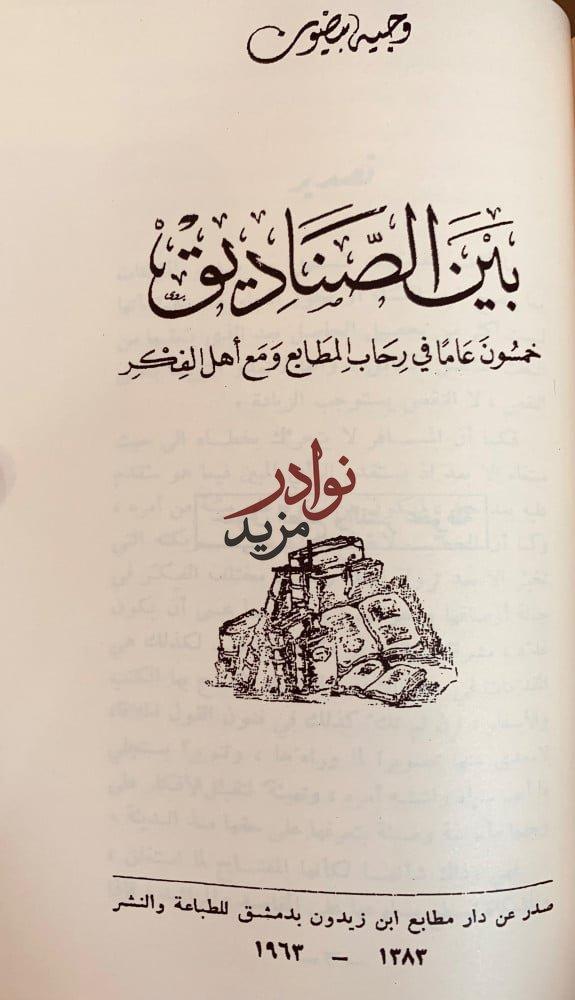 وجيه بيضون
بَيْنَ الصَّنَادِيق
خمسُونَ عَامًا في رِحَابِ المَطَابع وَمَع أهل الفِكْرِ
نوادر
مزيد
صدر عن دار مطابع ابن زيدون بدمشق للطباعة والنشر
١٣٨٣ – ١٩٦٣